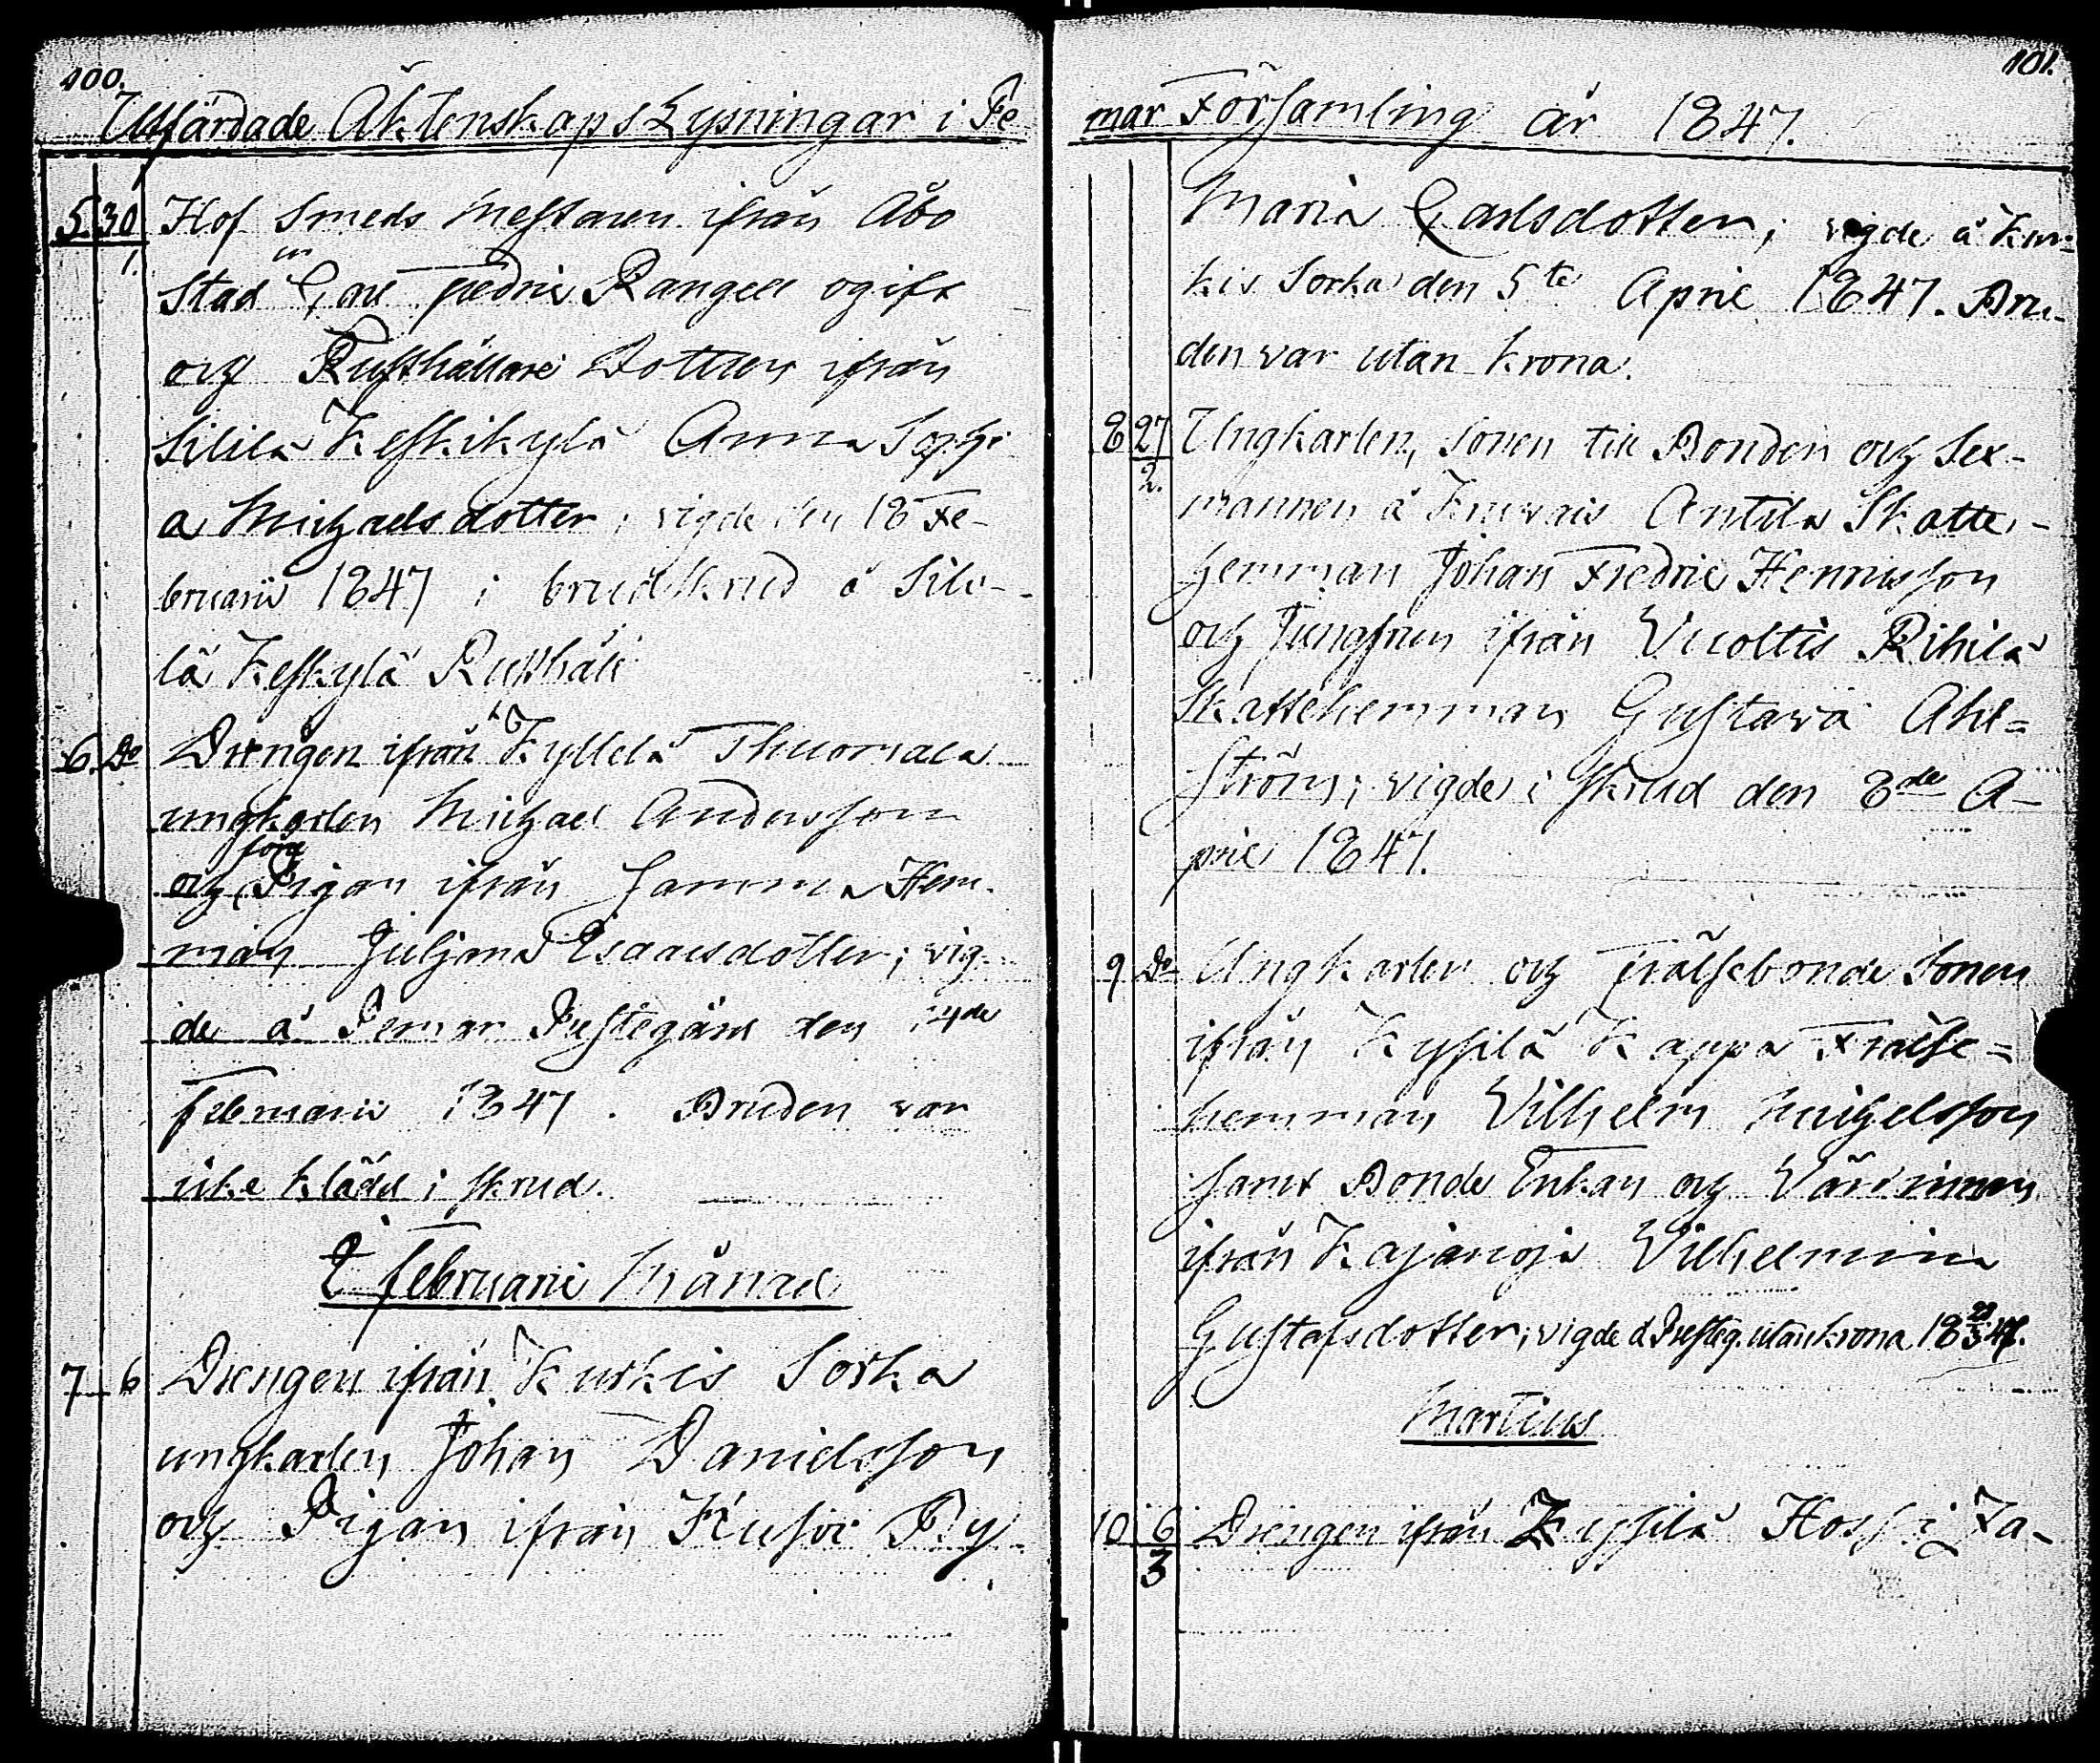 100.
Utfärdade Äktenskaps Lysningar i Pe
5. 30/1. Hof Smeds Mestaren ifrån Åbo
Stad Carl Fredric Rangell ogift
och Rusthållare Dottren ifrån
Silila Keskikylä Anna Sophi
a Michaelsdotter, vigde den 18 Fe-
bruarii 1847 i brudskrud å Sili-
lä Keskylä Rusthåll
6. Do Drengen ifrån Kyllelä Thuomala
ungkarlen Michael Andersson
och Pigan ifrån samma Hem-
man Juljana Isaacsdotter; vig-
de å Pemar Prestegård den 14de
Februarii 1847. Bruden var
icke klädd i skrud.
Februarii Månad
7 6 Drengen ifrån Kurkis Sorka
ungkarlen Johan Danielsson
och Pigan ifrån Kusve By
101.
mar Församling år 1847.
Maria Carlsdotter; vigde å Kur-
kis Sorka den 5te April 1847. Bru-
den var utan krona.
8 27/2. Ungkarlen, Sonen till Bonden och Sex-
mannen å Antila Skatte-
hemman Johan Fredric Henricsson
och Jungfrun ifrån Vuoltis Rihilä
Skattehemman Gustava Ahl=
ström; vigde i skrud den 8de A-
pril 1847.
9 Do Ungkarlen och Frälsebonde Sonen
ifrån Kyssilä Kappa Frälse=
hemman Vilhelm Michelsson
samt Bonde Enkan och Värdinnan
ifrån Kajanoja Vilhelmina
Gustafsdotter; vigde å Presteg. utan krona 18 47.
Martius
10 6/3 Drengen ifrån Kyssilä Hossi Ja-